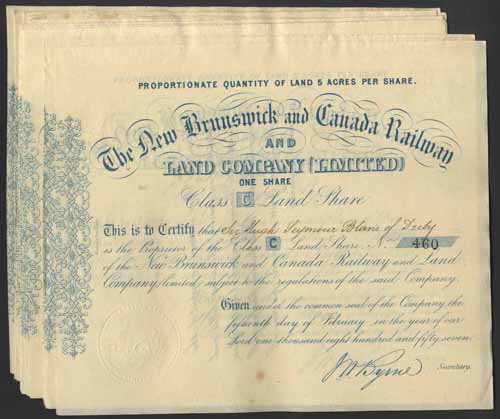 PROPORTIONATE QUANTITY OF LAND 5 ACRES PER SHARE.
The New Brunswick and Canada Railway
AND
LAND COMPANY (LIMITED)
ONE SHARE
Class C Land Share
This is to Certify that Sir Hugh Seymour Blane of Derby
is the Proprietor of the Class C Land Share, No. 460
of the New Brunswick and Canada Railway and Land
Company, limited, subject to the regulations of the said Company.
Given under the common seal of the Company, the
fifteenth day of February in the year of our
Lord one thousand eight hundred and fifty seven.
J W Byrne Secretary.